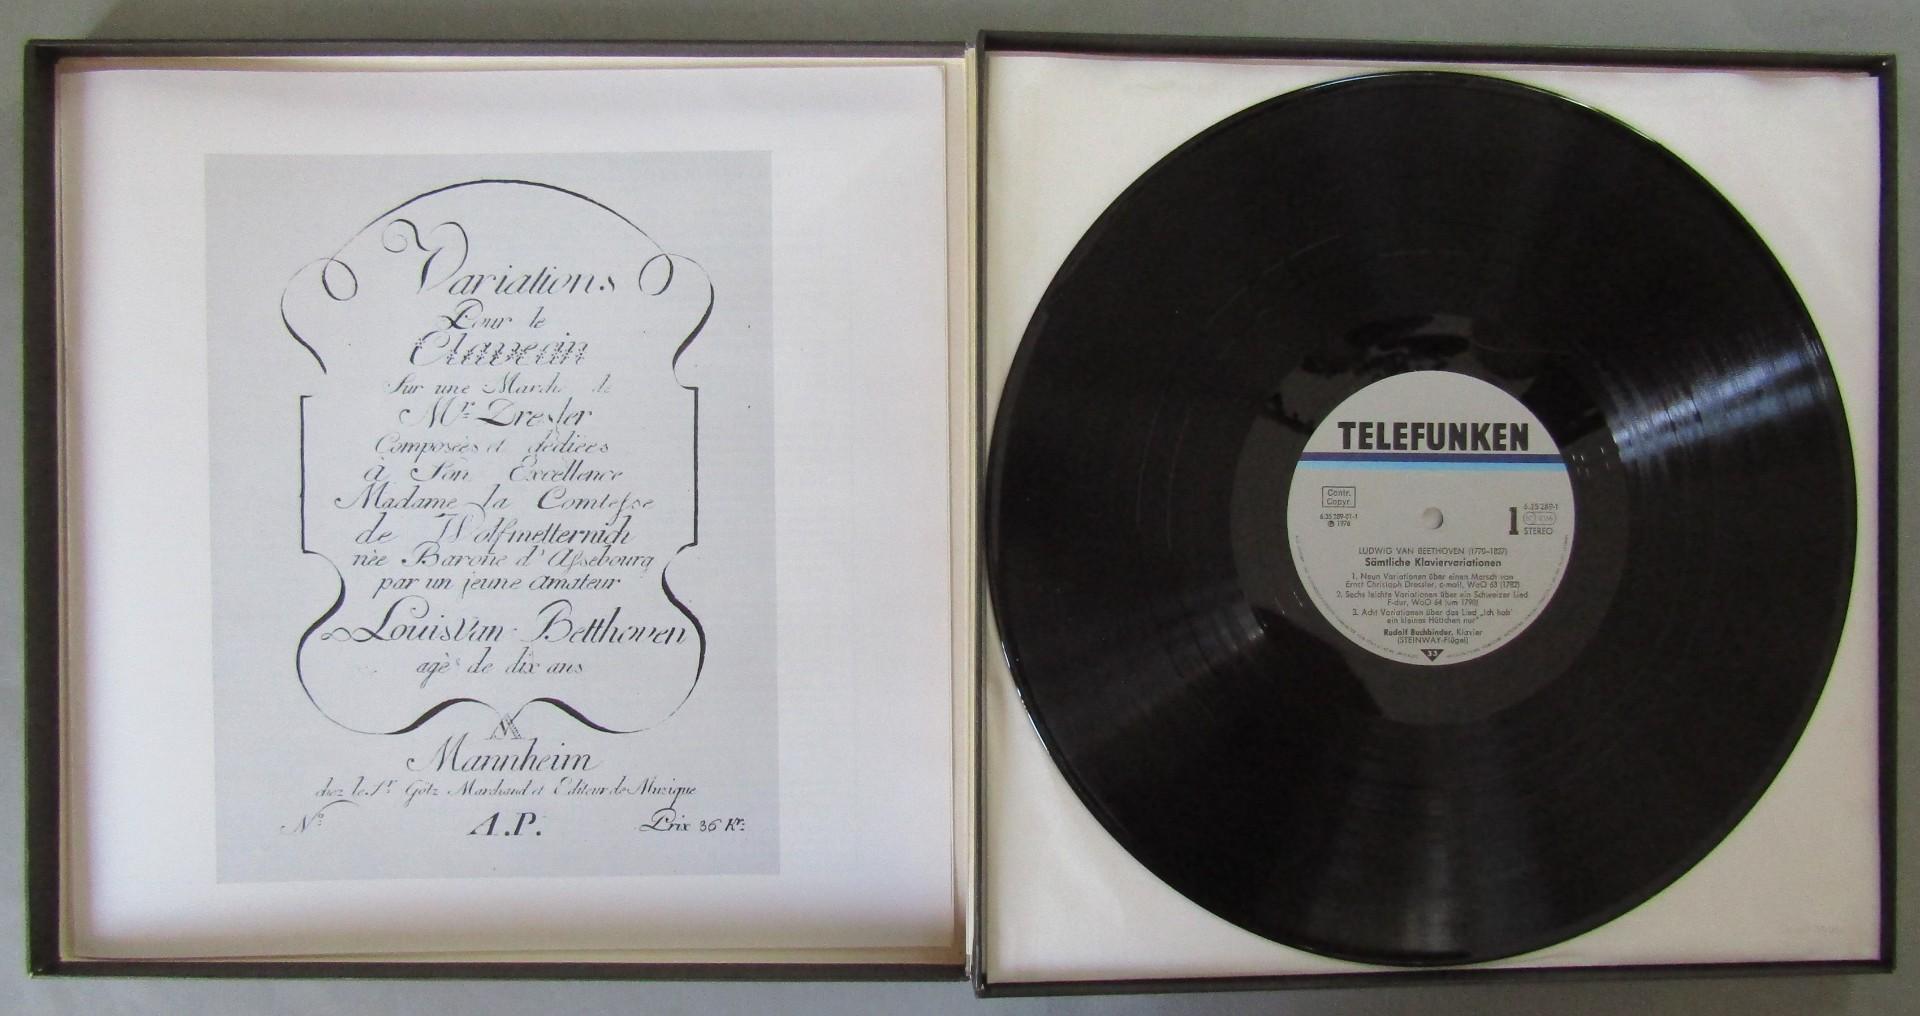 Variations
Pour le
Clavecin
Sur une Marche de
Mr. Dresler
Composées et dediées
à Son Excellence
Madame la Comtesse
de Wolfmetternich
née Barone d'Assebourg
par un jeune amateur
Louis van Betthoven
agè de dix ans
Mannheim
chez le Sr. Götz Marchand et Editeur de Musique
No. A.P. Prix 36 Kr:
TELEFUNKEN
Contr.
Copyr.
6.35 289-01-1
℗ 1976
1
6.35 289-1
STEREO
LUDWIG VAN BEETHOVEN (1770–1827)
Sämtliche Klaviervariationen
1. Neun Variationen über einen Marsch von
Ernst Christoph Dressler, c-moll, WoO 63 (1782)
2. Sechs leichte Variationen über ein Schweizer Lied
F-dur, WoO 64 (um 1790)
3. Acht Variationen über das Lied „Ich hab'
ein kleines Hüttchen nur"
Rudolf Buchbinder, Klavier
(STEINWAY-Flügel)
33